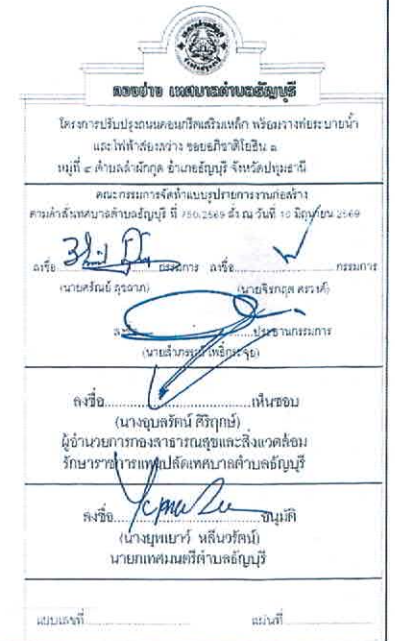 กองช่าง เทศบาลตำบลธัญบุรี
โครงการปรับปรุงถนนคอนกรีตเสริมเหล็ก พร้อมวางท่อระบายน้ำ
และไฟฟ้าส่องสว่าง ซอยอภิชาติโยธิน ๑
หมู่ที่ ๔ ตำบลลำผักกูด อำเภอธัญบุรี จังหวัดปทุมธานี
คณะกรรมการจัดทำแบบรูปรายการงานก่อสร้าง
ตามคำสั่งเทศบาลตำบลธัญบุรี ที่ 750/2569 สั่ง ณ วันที่ 10 มิถุนายน 2569
ลงชื่อ กรรมการ ลงชื่อ กรรมการ
(นายศรัณย์ สุขลาภ) (นายจิรกฤต
ลงชื่อ ประธานกรรมการ
ลงชื่อ เห็นชอบ
(นางอุบลรัตน์ ศิริฤกษ์)
ผู้อำนวยการกองสาธารณสุขและสิ่งแวดล้อม
รักษาราชการแทนปลัดเทศบาลตำบลธัญบุรี
ลงชื่อ อนุมัติ
(นางยุพเยาว์ หลีนวรัตน์)
นายกเทศมนตรีตำบลธัญบุรี
แบบเลขที่ แผ่นที่